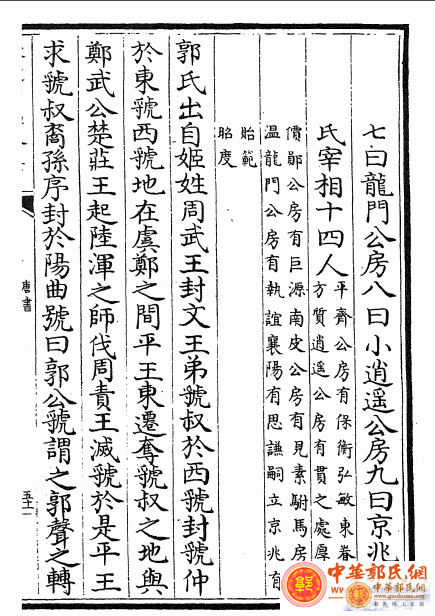 七曰龍門公房八曰小逍遥公房九曰京兆
氏宰相十四人平齊公房有保衡弘敏東眷
方質逍遥公房有貫之處厚
價鄖公房有巨源南皮公房有見素駙馬房
温龍門公房有執誼襄陽有思謙嗣立京兆有
貽範
昭度
郭氏出自姬姓周武王封文王弟虢叔於西虢封虢仲
於東虢西虢地在虞鄭之間平王東遷奪虢叔之地與
鄭武公楚莊王起陸渾之師伐周責王滅虢於是平王
求虢叔裔孫序封於陽曲號曰郭公虢謂之郭聲之轉
唐書
五十二
中華郭氏網
中華郭氏網